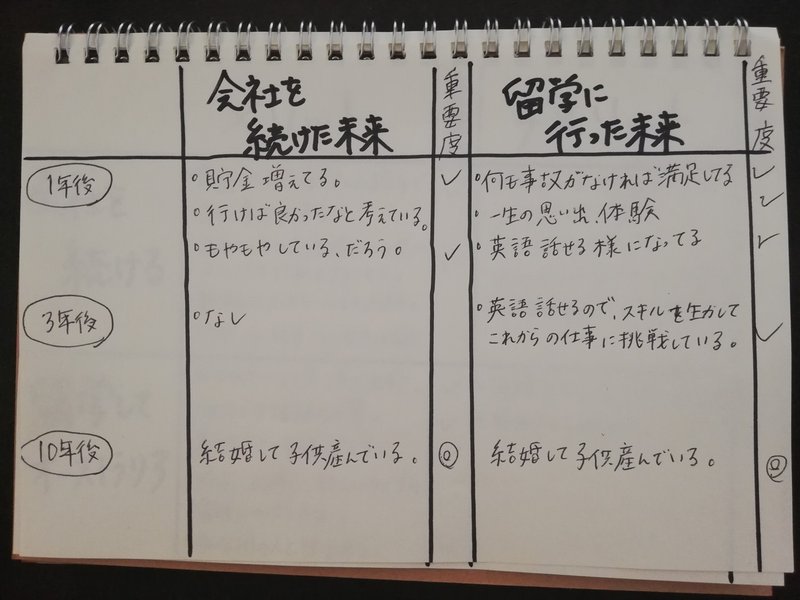 会社を
続けた未来
重要度
留学に
行った未来
重要度
1年後
○貯金増えてる。
✓
○何も事故がなければ満足してる
✓
○行けば良かったなと考えている。
○一生の思い出、体験
✓
○もやもやしている、だろう。
✓
○英語話せる様になってる
✓
3年後
○なし
○英語話せるので、スキルを生かして
これからの仕事に挑戦している。
✓
10年後
結婚して子供産んでいる。
◎
結婚して子供産んでいる。
◎